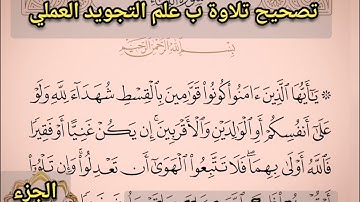 تصحيح تلاوة ب علم التجويد العملي
بِسْمِ ٱللَّهِ ٱلرَّحْمَٰنِ ٱلرَّحِيمِ
۞ يَٰٓأَيُّهَا ٱلَّذِينَ ءَامَنُوا۟ كُونُوا۟ قَوَّٰمِينَ بِٱلْقِسْطِ شُهَدَآءَ لِلَّهِ وَلَوْ
عَلَىٰٓ أَنفُسِكُمْ أَوِ ٱلْوَٰلِدَيْنِ وَٱلْأَقْرَبِينَ ۚ إِن يَكُنْ غَنِيًّا أَوْ فَقِيرًا
فَٱللَّهُ أَوْلَىٰ بِهِمَا ۖ فَلَا تَتَّبِعُوا۟ ٱلْهَوَىٰٓ أَن تَعْدِلُوا۟ ۚ وَإِن تَلْوُۥٓا۟
الجزء